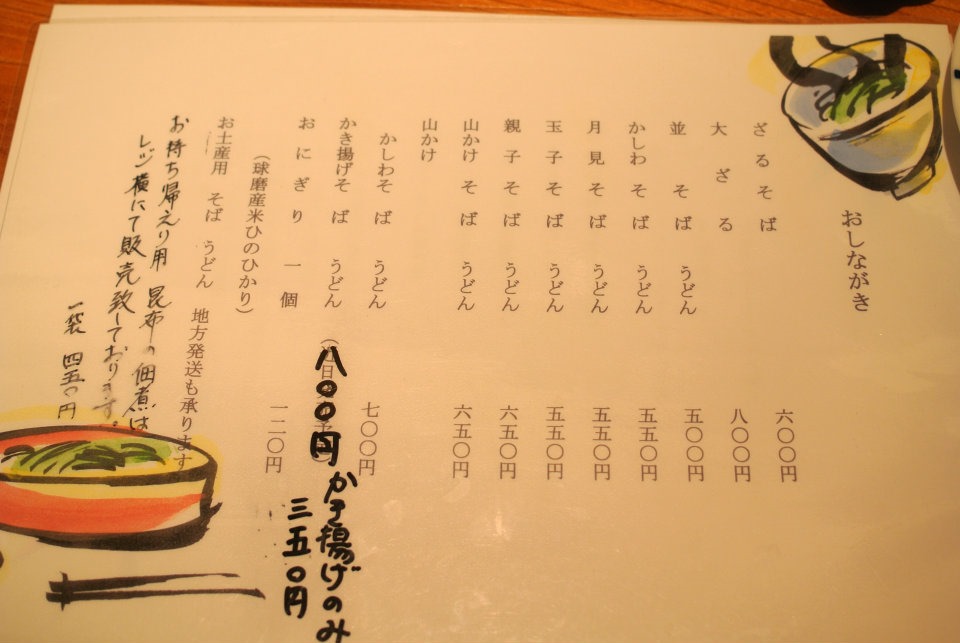 おしながき
ざるそば 六〇〇円
大ざる 八〇〇円
並そば うどん 五〇〇円
かしわそば うどん 五五〇円
月見そば うどん 五五〇円
玉子そば うどん 五五〇円
親子そば うどん 六五〇円
山かけそば うどん 六五〇円
山かけ
かしわそば うどん 七〇〇円
かき揚げそば うどん 八〇〇円 かき揚げのみ
三五〇円
おにぎり 一個 一二〇円
(球磨産米ひのひかり)
お土産用 そば うどん 地方発送も承ります
お持ち帰えり用 昆布の佃煮は
レジ横にて販売致しております。
一袋 四五〇円